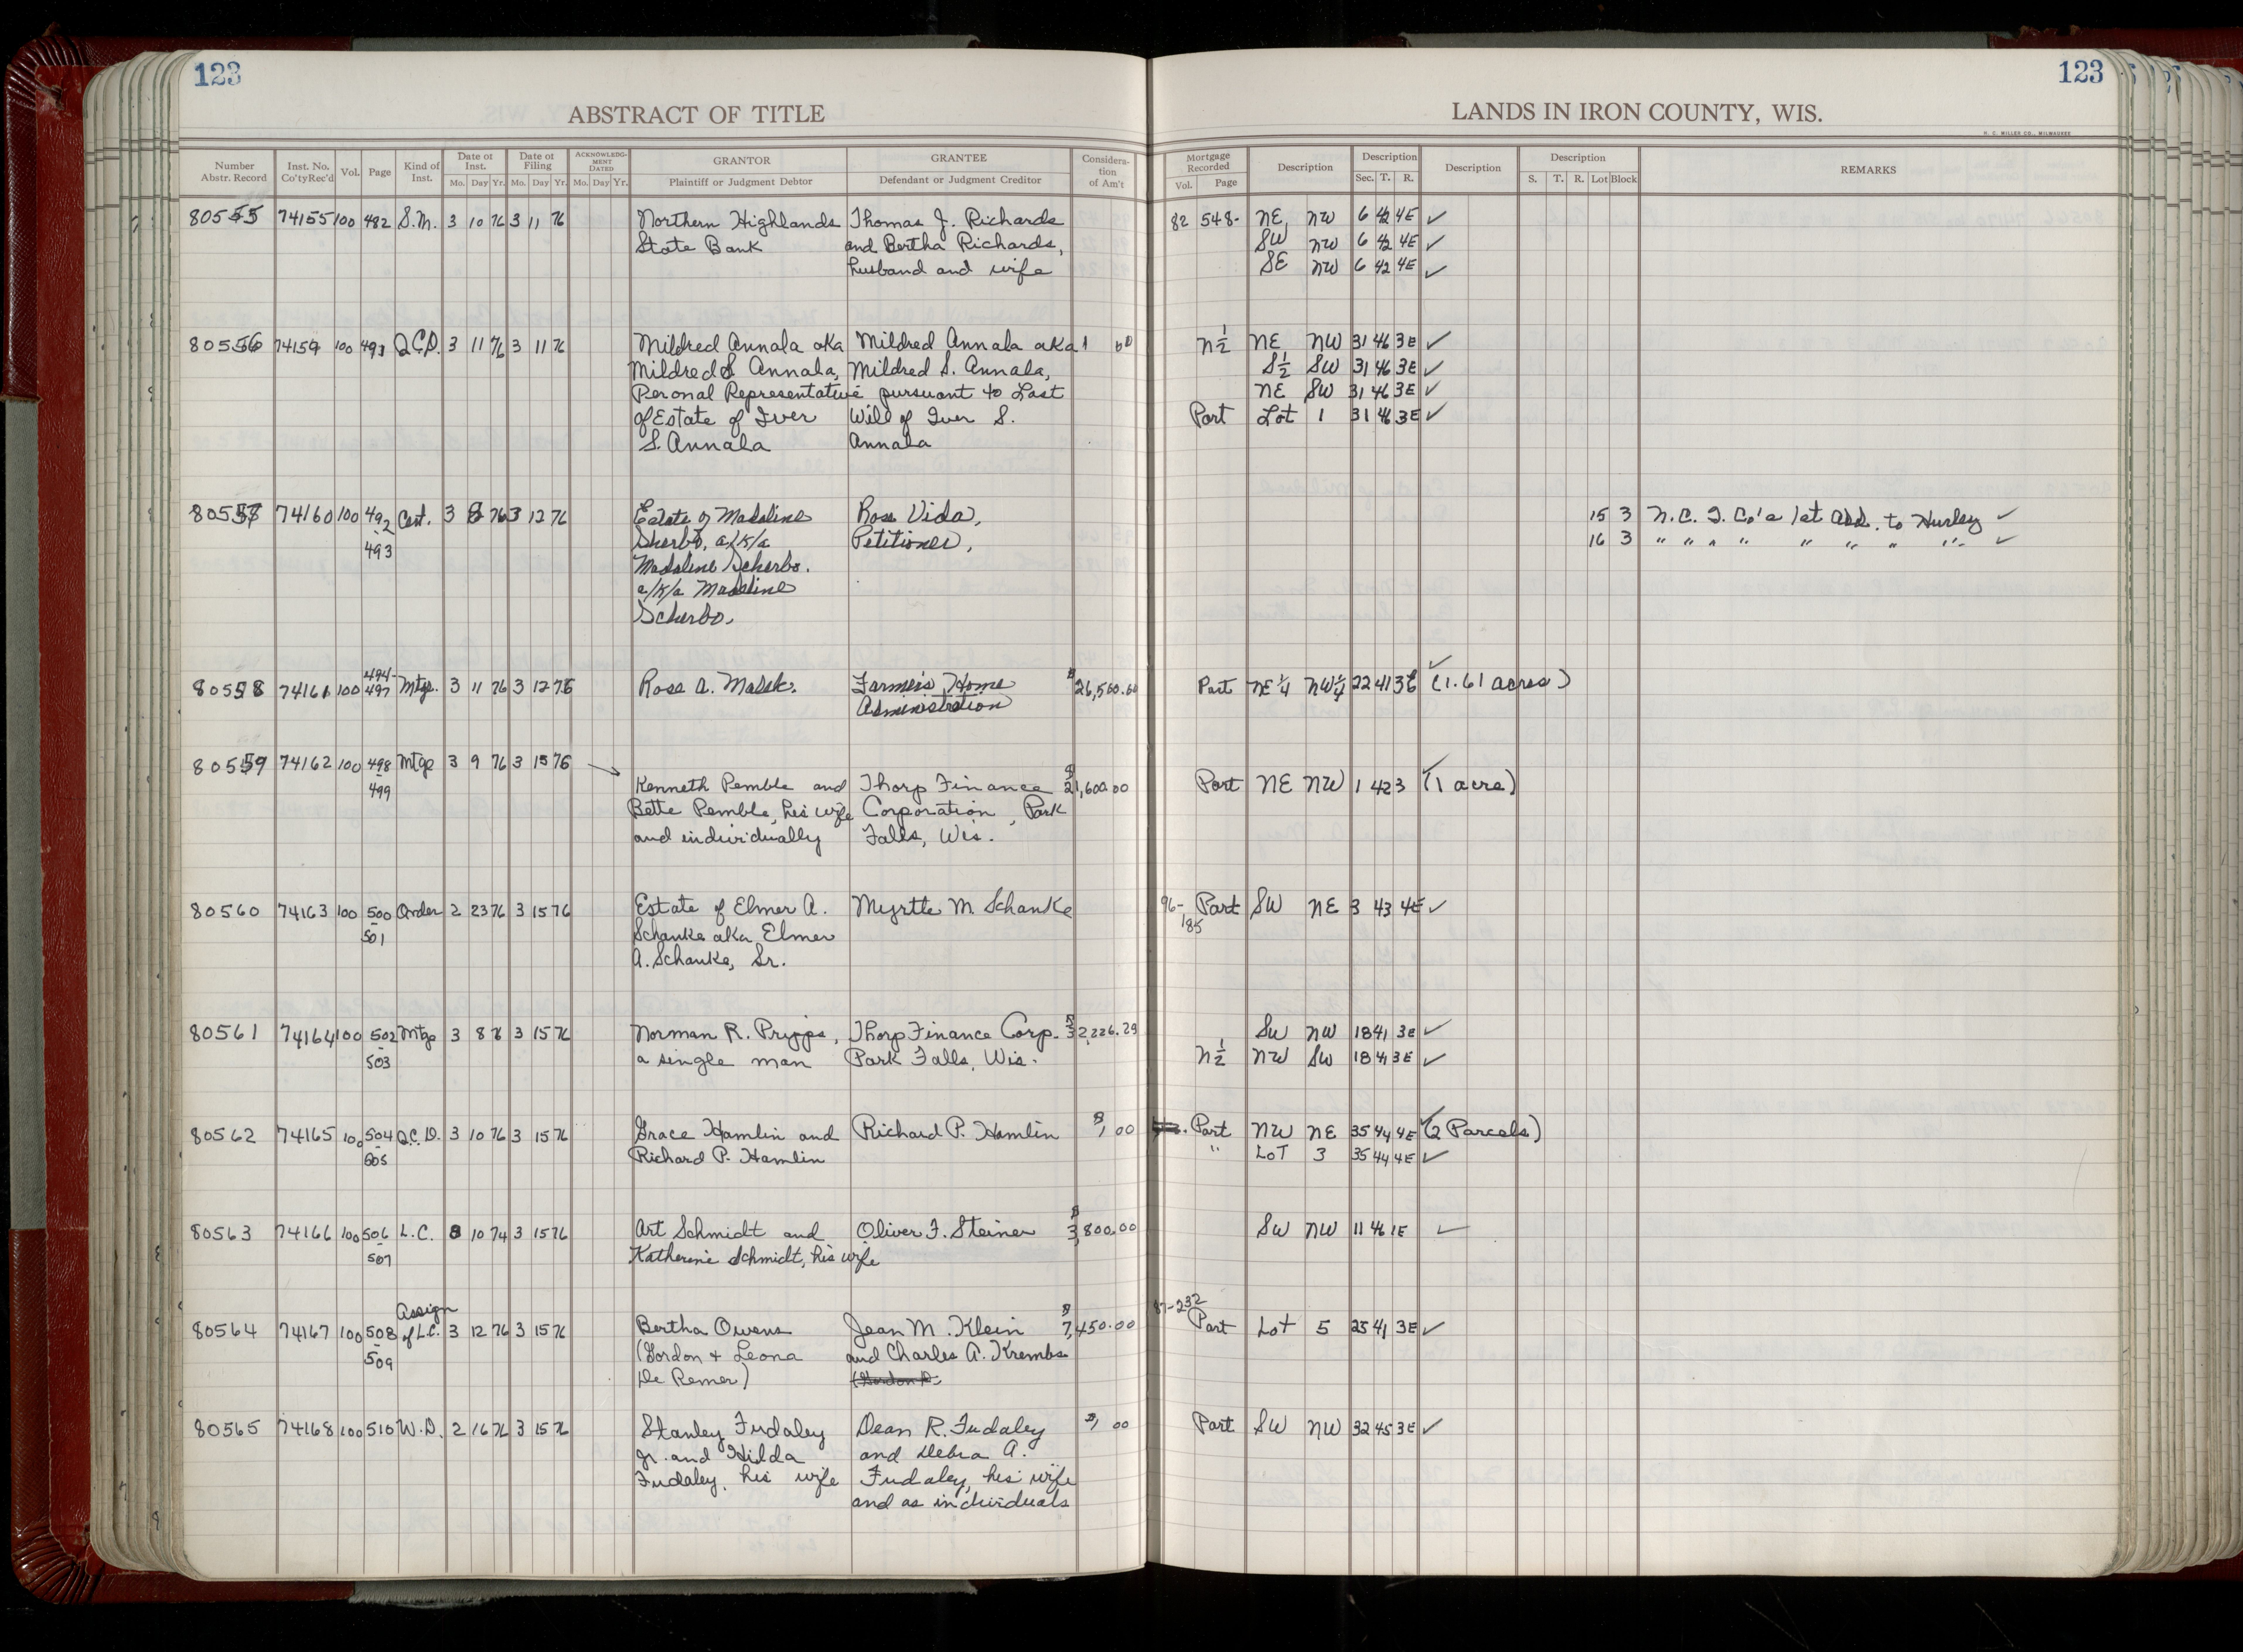 123
ABSTRACT OF TITLE
Number Abstr. Record Inst. No. Co'ty Rec'd Vol. Page Kind of Inst. Date of Inst. Mo. Day Yr. Date of Filing Mo. Day Yr. ACKNOWLEDGMENT DATED Mo. Day Yr. GRANTOR Plaintiff or Judgment Debtor GRANTEE Defendant or Judgment Creditor Consideration of Am't
80555 74155 100 482 S.M. 3 10 76 3 11 76 Northern Highlands Thomas J. Richards
State Bank and Bertha Richards,
husband and wife
80556 74159 100 493 Q.C.D. 3 11 76 3 11 76 Mildred Annala aka Mildred Annala aka 1 00
Mildred S Annala, Mildred S. Annala,
Peronal Representative pursuant to Last
of Estate of Iver Will of Iver S.
S. Annala Annala
80557 74160 100 492 Cert. 3 8 76 3 12 76 Estate of Madeline Rose Vida,
- 493 Sherbo, a/k/a Petitioner,
Madeline Scherbo.
a/k/a Madeline
Scherbo.
80558 74161 100 494-497 Mtge. 3 11 76 3 12 76 Rose A. Masek. Farmers Home $26,560.00
Administration
80559 74162 100 498 Mtge 3 9 76 3 15 76
- 499 Kenneth Pemble and Thorp Finance $21,600.00
Bette Pemble, his wife Corporation, Park
and individually Falls, Wis.
80560 74163 100 500 Order 2 23 76 3 15 76 Estate of Elmer A. Myrtle M. Schanke
- 501 Schanke aka Elmer
A. Schanke, Sr.
80561 74164 100 502 Mtge 3 8 76 3 15 76 Norman R. Pripps, Thorp Finance Corp. $32,226.29
- 503 a single man Park Falls, Wis.
80562 74165 100 504 Q.C.D. 3 10 76 3 15 76 Grace Hamlin and Richard P. Hamlin $1 00
505 Richard P. Hamlin
80563 74166 100 506 L.C. 8 10 74 3 15 76 Art Schmidt and Oliver F. Steiner $3,800.00
- 507 Katherine Schmidt, his wife
Assign
80564 74167 100 508 of L.C. 3 12 76 3 15 76 Bertha Owens Jean M. Klein $7,450.00
- 509 (Gordon + Leona and Charles A. Krembs
De Remer)
80565 74168 100 510 W.D. 2 16 76 3 15 76 Stanley Fudaley Dean R. Fudaley $1 00
Jr. and Hilda and Debra A.
Fudaley, his wife Fudaley, his wife
and as individuals
123
LANDS IN IRON COUNTY, WIS.
H. C. MILLER CO., MILWAUKEE
Mortgage Recorded Vol. Page Description Description Sec. T. R. Description Description S. T. R. Lot Block REMARKS
82 548- NE NW 6 42 4E ✓
SW NW 6 42 4E ✓
SE NW 6 42 4E ✓
N½ NE NW 31 46 3E ✓
S½ SW 31 46 3E ✓
NE SW 31 46 3E ✓
Part Lot 1 31 46 3E ✓
15 3 N. C. I. Co's 1st Add. to Hurley ✓
16 3 " " " " " " " " ✓
Part NE¼ NW¼ 22 41 3E (1.61 acres) ✓
Part NE NW 1 42 3 (1 acre) ✓
96-185 Part SW NE 3 43 4E ✓
SW NW 18 41 3E ✓
N½ NW SW 18 41 3E ✓
Part NW NE 35 44 4E (2 Parcels) ✓
" LOT 3 35 44 4E ✓
SW NW 11 46 1E ✓
87-232
Part Lot 5 25 41 3E ✓
Part SW NW 32 45 3E ✓